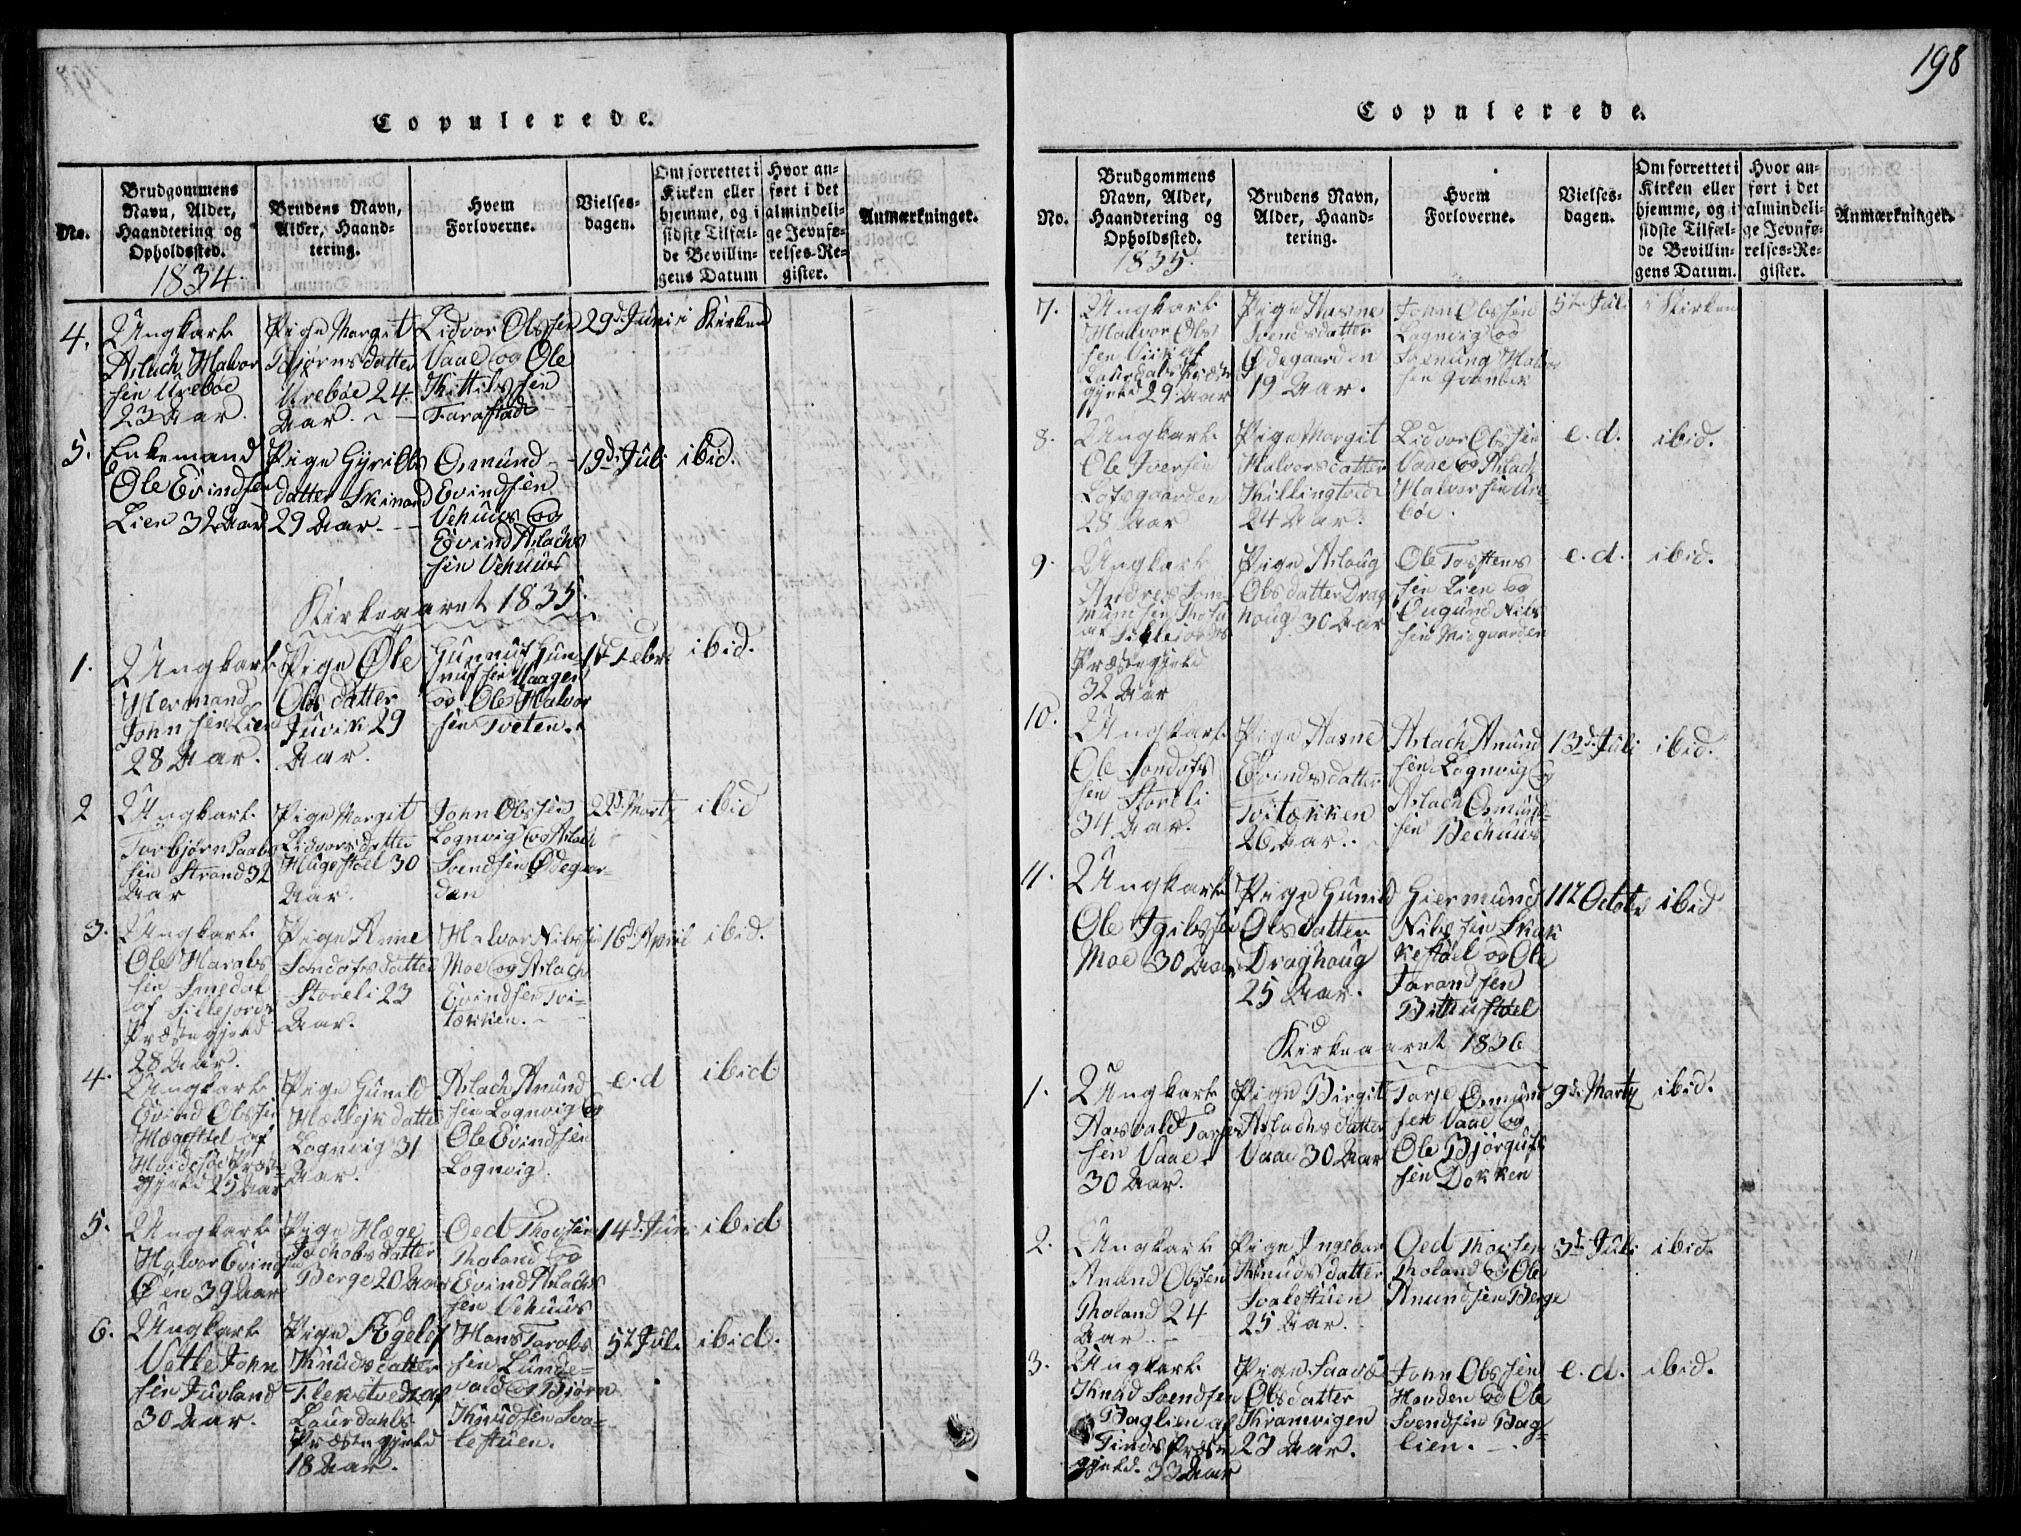 198
Copulerede.
No.
Brudgommens
Navn, Alder,
Haandtering og
Opholdssted.
1834.
Brudens Navn,
Alder, Haand-
tering.
Hvem
Forloverne.
Vielses-
dagen.
Om forrettet i
Kirken eller
hjemme, og i
sidste Tilfæl-
de Bevillin-
gens Datum
Hvor an-
ført i det
almindeli-
ge Jevnfø-
relses-Re-
gister.
Anmærkninger.
4.
Ungkarl
Aslach Halvor
sen Urebøe
23 Aar.
Pige Margit
Torbjørnsdatter
Urebøe 24
Aar.
Lidvor Olssen
Vaae og Ole
Kittilssen
Tarastad
29d. Juni
i Kirken
5.
Enkemand
Ole Evindsen
Lien 32 Aar
Pige Gyri Ols
datter Skinand
29 Aar.
Osmund
Evindsen
Vehuus og
Evind Aslachs
sen Vehuus
19d. Juli
ibid.
Kirkeaaret 1835.
1.
Ungkarl
Hermand
Johnsen Lien
28 Aar.
Pige Ole
Olsdatter
Juvik 29
Aar.
Gunnuf Gun-
nufsen Haagen
og Ole Halvor
sen Tveten.
1d Febr.
ibid.
2
Ungkarl
Torbjørn Saabø
sen Strand 32
Aar
Pige Margit
Lidvorsdatter
Hugestøel 30
Aar.
John Olssen
Lognvig og Aslach
Svendsen Ødegaar-
den
22d. Marty
ibid
3.
Ungkarl
Ole Haralds
sen Smedal
af Sillejords
Præstegjeld
28 Aar.
Pige Anne
Sondofsdatter
Storeli 23
Aar.
Halvor Nilssen
Moe og Aslach
Evindsen Tvi-
tækken.
16d. April
ibid.
4.
Ungkarl
Evind Olssen
af
Hvidesøe Præste
gjeld 25 Aar
Pige Gunild
datter
Lognvig 31
Aar.
Aslach Anund
sen Lognvig og
Ole Evindsen
Lognvig.
e. d
ibid
5.
Ungkarl
Halvor Evindsen
Øen 39 Aar
Pige Hæge
Jachobsdatter
Berge 20 Aar
Oed Thovsen
Tholand og
Evind Aslachs
sen Vehuus
14d. Juni
ibid
6.
Ungkarl
Vetle John
sen Juvland
30 Aar.
Pige Ægelof
Knudsdatter
Flekstvedt af
Laurdahls
Præstegjeld
18 Aar.
Hans Tarals
sen Lunde-
vald og Bjørn
Knudsen Sva-
lestuen.
5d. Juli
ibid.
Copulerede.
No.
Brudgommens
Navn, Alder,
Haandtering og
Opholdssted.
1835.
Brudens Navn,
Alder, Haand-
tering.
Hvem
Forloverne.
Vielses-
dagen.
Om forrettet i
Kirken eller
hjemme, og i
sidste Tilfæl-
de Bevillin-
gens Datum.
Hvor an-
ført i det
almindeli-
ge Jevnfø-
relses-Re-
gister.
Anmærkninger.
7.
Ungkarl
Halvor Ols
sen Vik af
Laurdals Præste
gjeld 29 Aar
Pige Aasne
Svendsdatter
Ødegaarden
19 Aar.
John Olssen
Lognvig og
Halvor
sen
5te Juli
i Kirken
8.
Ungkarl
Ole Iversen
Loftsgaarden
28 Aar
Pige Margit
Halvorsdatter
Killingtvedt
24 Aar.
Lidvor Olssen
Vaae og Aslach
Halvorsen Ure
bøe.
e. d.
ibid.
9.
Ungkarl
Andres
af Sillejords
Præstegjeld
32 Aar
Pige Aslaug
Olsdatter Drag
houg 30 Aar
Ole Torstens
sen Lien og
Ougund Nils
sen Midgaarden
e. d.
ibid.
10.
Ungkarl
Ole Sondofs
sen Storeli
34 Aar.
Pige Aasne
Evindsdatter
Tvitækken
26 Aar.
Aslach Anund
sen Lognvig og
Aslach Osmund-
sen Bechuus
13d. Juli
ibid.
11.
Ungkarl
Ole Igilssen
Moe 30 Aar
Pige Gunild
Olsdatter
Draghoug
25 Aar.
Giermund
Nilssen Skak
kestøel og Ole
Tarandsen
Bittustøel
11te Octobr
ibid
Kirkeaaret 1836
1.
Ungkarl
Aasvald Tarje
sen Vaae
30 Aar.
Pige Birgit
Aslachsdatter
Vaae 30 Aar
Tarje Osmund
sen Vaae og
Ole Bjørgufs
sen Dokken
9d. Marty
ibid.
2.
Ungkarl
Anund Olssen
Tholand 24
Aar.
Pige Ingebor
Knudsdatter
Svalestuen
25 Aar.
Oed Thovsen
Tholand og Ole
Anundsen Berge
3d. Juli
ibid.
3.
Ungkarl
Knud Svendsen
Baglien af
Tinds Præste
gjeld. 33 Aar
Pige Saave
Olsdatter
Kramvigen
23 Aar.
John Olssen
Hovden og Ole
Svendsen Bag-
lien.
e. d.
ibid.